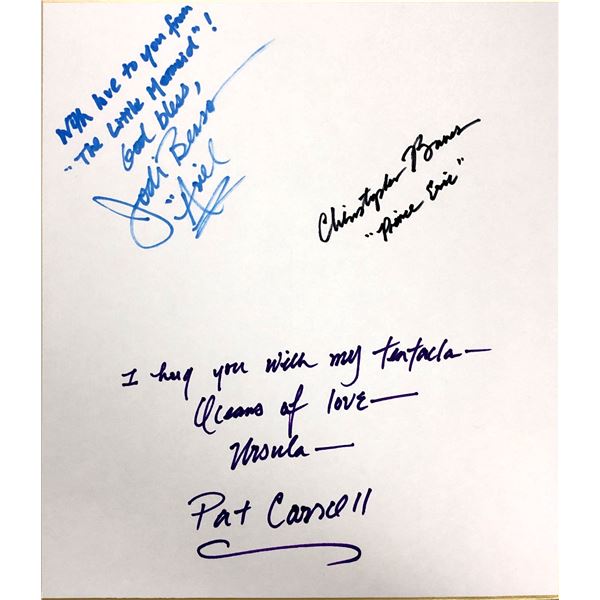 With love to you from
"The Little Mermaid"!
God bless,
Jodi Benson
"Ariel"
Christopher Barnes
"Prince Eric"
I hug you with my tentacla—
Oceans of love—
Ursula—
Pat Carroll